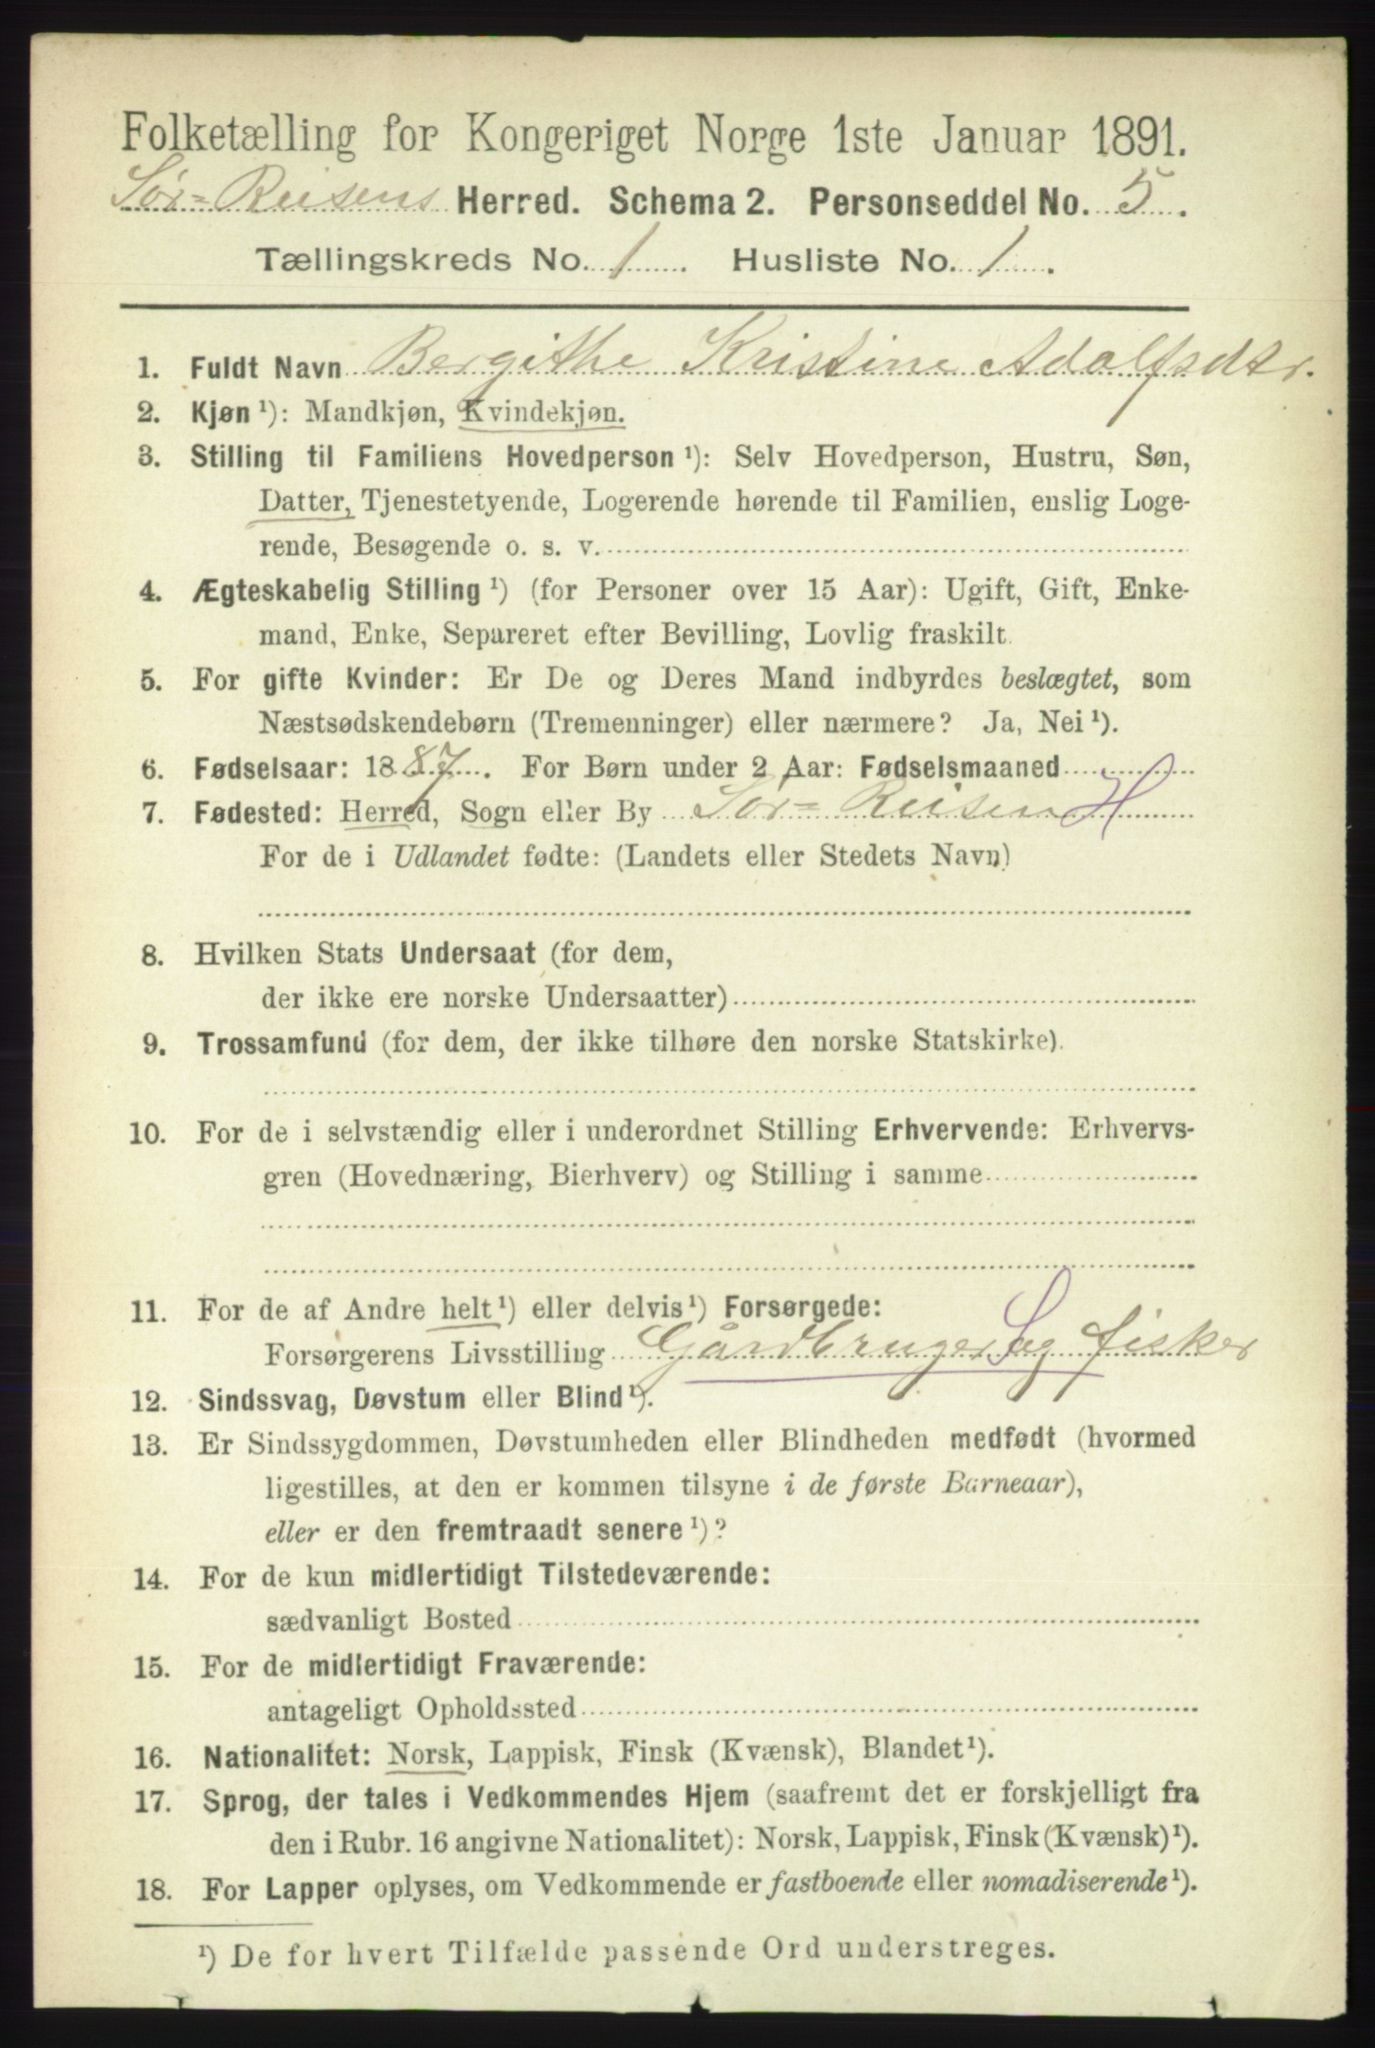 Folketælling for Kongeriget Norge 1ste Januar 1891.
Sör=Reisens Herred. Schema 2. Personseddel No. 5.
Tællingskreds No. 1. Husliste No. 1.
1. Fuldt Navn Bergithe Kristine Adolfsdtr.
2. Kjøn¹): Mandkjøn, Kvindekjøn.
3. Stilling til Familiens Hovedperson¹): Selv Hovedperson, Hustru, Søn,
Datter, Tjenestetyende, Logerende hørende til Familien, enslig Loge-
rende, Besøgende o. s. v.
4. Ægteskabelig Stilling¹) (for Personer over 15 Aar): Ugift, Gift, Enke-
mand, Enke, Separeret efter Bevilling, Lovlig fraskilt.
5. For gifte Kvinder: Er De og Deres Mand indbyrdes beslægtet, som
Næstsødskendebørn (Tremenninger) eller nærmere? Ja, Nei¹).
6. Fødselsaar: 1887. For Børn under 2 Aar: Fødselsmaaned
7. Fødested: Herred, Sogn eller By Sör=Reisen H
For de i Udlandet fødte: (Landets eller Stedets Navn)
8. Hvilken Stats Undersaat (for dem,
der ikke ere norske Undersaatter)
9. Trossamfund (for dem, der ikke tilhøre den norske Statskirke).
10. For de i selvstændig eller i underordnet Stilling Erhvervende: Erhvervs-
gren (Hovednæring, Bierhverv) og Stilling i samme
11. For de af Andre helt¹) eller delvis¹) Forsørgede:
Forsørgerens Livsstilling Gårdbruger S og fisker
12. Sindssvag, Døvstum eller Blind¹).
13. Er Sindssygdommen, Døvstumheden eller Blindheden medfødt (hvormed
ligestilles, at den er kommen tilsyne i de første Barneaar),
eller er den fremtraadt senere¹)?
14. For de kun midlertidigt Tilstedeværende:
sædvanligt Bosted
15. For de midlertidigt Fraværende:
antageligt Opholdssted
16. Nationalitet: Norsk, Lappisk, Finsk (Kvænsk), Blandet¹).
17. Sprog, der tales i Vedkommendes Hjem (saafremt det er forskjelligt fra
den i Rubr. 16 angivne Nationalitet): Norsk, Lappisk, Finsk (Kvænsk)¹).
18. For Lapper oplyses, om Vedkommende er fastboende eller nomadiserende¹).
¹) De for hvert Tilfælde passende Ord understreges.